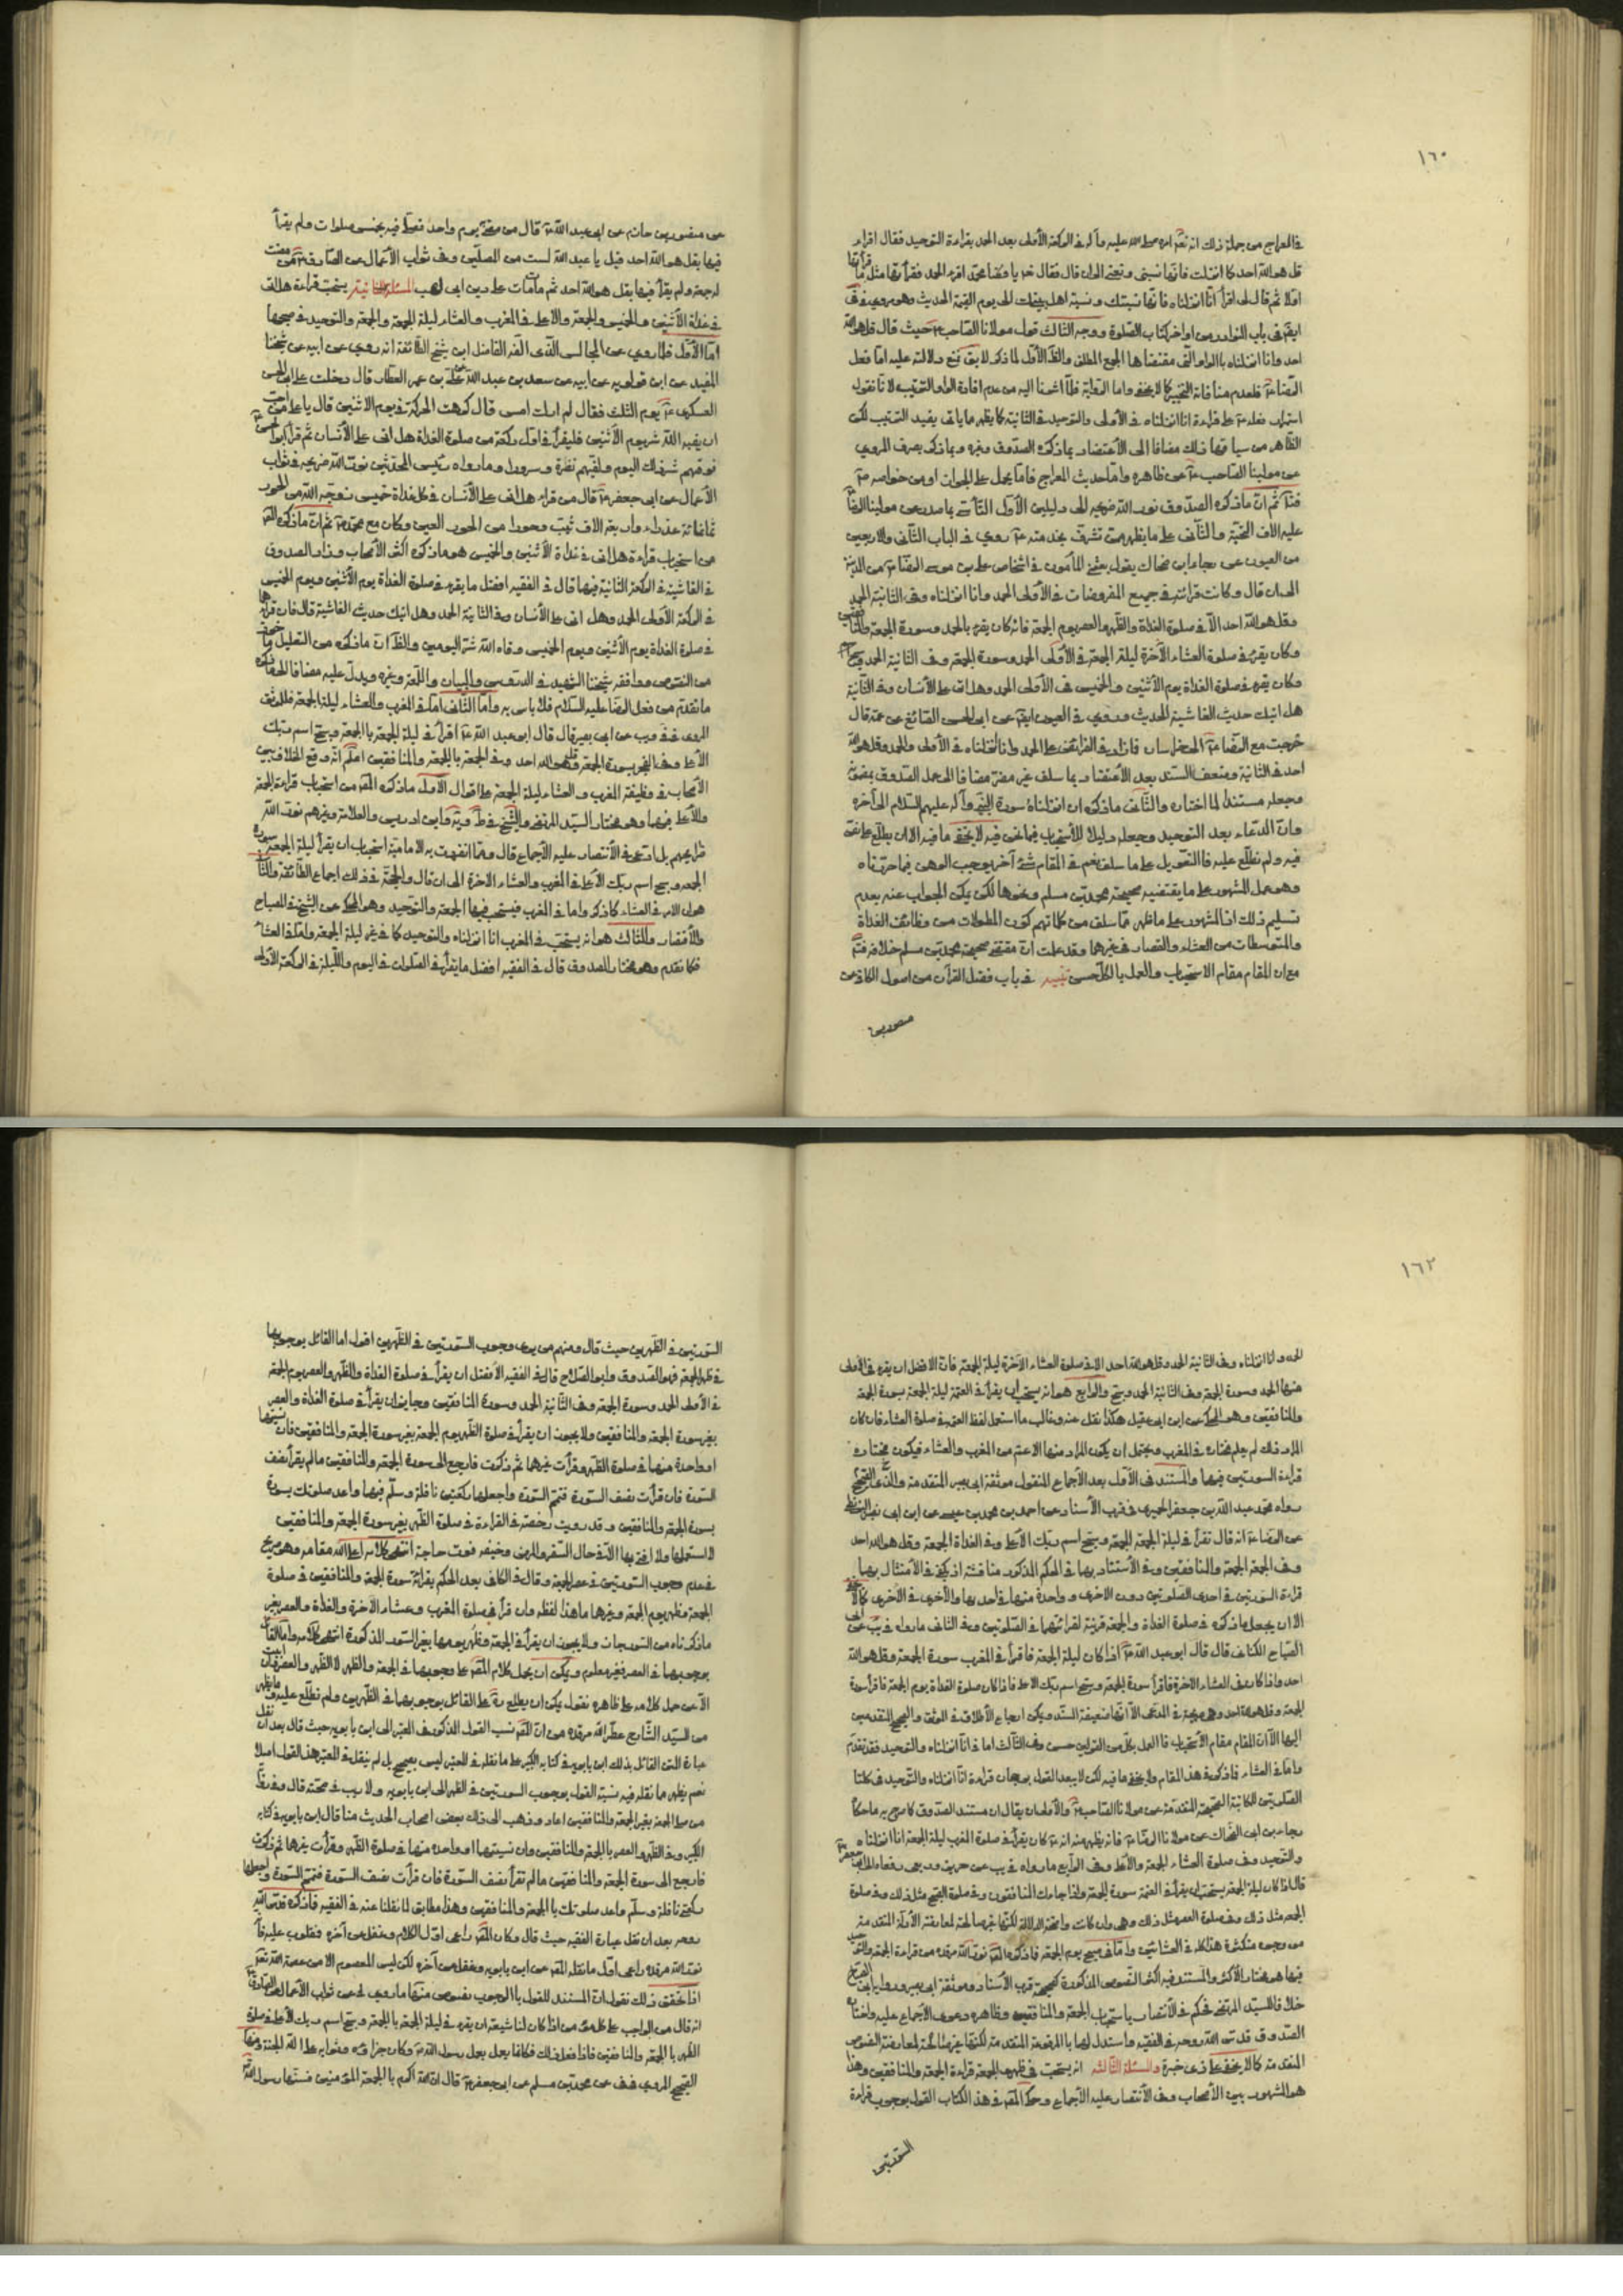 ١٦٠
في المعراج من جملة ذلك انه تعالى امره صلى الله عليه وآله في الركعة الأولى بعد الحمد بقراءة التوحيد فقال اقراء
قل هو الله احد كما انزلت فانها نسبتي ونعتي
اقرأ انا انزلناه فانها نسبتك ونسبة اهل بيتك الى يوم القيمة الحديث وهو مروي في
ايضا في باب النوادر من اواخر كتاب الصلوة ووجه الثالث قول مولانا الصاحب ع حيث قال قل هو الله
احد وانا انزلناه بالواو التي مقتضاها الجمع المطلق
الرضا ع
استمرار فعله ع على قراءة انا انزلناه في الأولى والتوحيد في الثانية كما يظهر مما يأتي يفيد الترتيب لكن
الظاهر من سياقها ذلك مضافا الى الاعتضاد بما ذكره الصدوق وغيره وبما ذكر يصرف المروي
عن مولينا الصاحب ع عن ظاهره واما حديث المعراج فاما يحمل على الجواز او من خواصه ع
ثم ان ما ذكره الصدوق نور الله ضريحه الى دليلين الأول التأسي بما صدر عن مولينا الرضا
عليه الاف التحية والثاني على ما يظهر ممن تشرف بخدمته ع روي في الباب الثاني والاربعين
من العيون عن رجاء بن ضحاك يقول بعثني المأمون في اشخاص علي بن موسى الرضا ع من المدينة
الى ان قال وكانت قرائته في جميع المفروضات في الأولى الحمد وانا انزلناه وفي الثانية الحمد
وقل هو الله احد الا في صلوة الغداة والظهر والعصر يوم الجمعة فانه كان يقرء بالحمد وسورة الجمعة والمنافقين
وكان يقرء في صلوة العشاء الآخرة ليلة الجمعة في الأولى الحمد وسورة الجمعة وفي الثانية الحمد وسبح
وكان يقرء في صلوة الغداة يوم الأثنين والخميس في الأولى الحمد وهل اتى على الأنسان وفي الثانية
هل اتيك حديث الغاشية الحديث وروي في العيون ايضا عن ابي الحسن الصائغ عن عمه قال
خرجت مع الرضا ع الى خراسان فما زاد في الفرائض على الحمد وانا انزلناه في الأولى والحمد وقل هو الله
احد في الثانية وضعف السند بعد الأعتضاد بما سلف غير مضر مضافا الى عمل الصدوق بمضمونه
وجعله مستندا لما اختاره والثاني ما ذكره ان انزلناه سورة النبي وآله عليهم السلام الى آخره
وان الدعاء بعد التوحيد وجعله دليلا للأستحباب فيما نحن فيه لا يخفى ما فيه الا ان يطلع على نص
فيه ولم نطلع عليه فالتعويل على ما سلف نعم في المقام شئ آخر يوجب الوهن فيما حررناه
وهو عمل المشهور على ما يقتضيه صحيحة محمد بن مسلم ونحوها لكن يمكن الجواب عنه بعدم
تسليم ذلك اذ المشهور على ما ظهر مما سلف من كلماتهم كون المطولات من وظائف الغداة
والمتوسطات من العشاء والقصار في غيرهما وقد علمت ان مقتضى صحيحة محمد بن مسلم خلافه
مع ان المقام مقام الاستحباب والعمل بالكل حسن تنبيه في باب فضل القرآن من اصول الكافي عن
منصور بن
عن منصور بن حازم عن ابي عبد الله ع قال من مضى به يوم واحد فصلى فيه بخمس صلوات ولم يقرأ
فيها بقل هو الله احد قيل يا عبد الله لست من المصلين وفي ثواب الأعمال عن الصادق ع من مضت
له جمعة ولم يقرأ فيها بقل هو الله احد ثم مات مات على دين ابي لهب المسئلة الثانية يستحب قراءة هل اتى
في غداة الأثنين والخميس والجمعة والأعلى في المغرب والعشاء ليلة الجمعة والجمعة والتوحيد في صبحها
اما الأول فلما روي عن المجالس الفقيه الفاضل ابن شيخ الطائفة انه روى عن ابيه عن شيخنا
المفيد عن ابن قولويه عن ابيه عن سعد بن عبد الله عن علي بن عمر العطار قال دخلت على ابي الحسن
العسكري ع يوم الثلث فقال لم ارك امس قال كرهت الحركة في يوم الاثنين قال يا علي من احب
ان يقيه الله شر يوم الأثنين فليقرأ في اول ركعة من صلوة الغداة هل اتى على الأنسان ثم قرأ ابو الحسن ع
فوقهم شر ذلك اليوم ولقيهم نضرة وسرورا وما رواه رئيس المحدثين نور الله ضريحه في ثواب
الأعمال عن ابي جعفر ع قال من قراء هل اتى على الأنسان في كل غداة خميس زوجه الله من الحور
ثمانمائة عذراء واربعة الاف ثيب وحوراء من الحور العين وكان مع محمد ع ثم ان ما ذكره المص
من استحباب قراءة هل اتى في غداة الأثنين والخميس هو ما ذكره اكثر الأصحاب وزاد الصدوق
في الغاشية في الركعة الثانية فيها قال في الفقيه افضل ما يقرء في صلوة الغداة يوم الأثنين ويوم الخميس
في الركعة الأولى الحمد وهل اتى على الأنسان وفي الثانية الحمد وهل اتيك حديث الغاشية قال فان من قراءها
في صلوة الغداة يوم الأثنين ويوم الخميس وقاه الله شر اليومين والظ ان ما ذكره من التعليل
من النصوص ووافقه شيخنا الشهيد في الدروس والبيان واللمعة وغيره ويدل عليه مضافا الى ما ذكره
ما تقدم من فعل الرضا عليه السلام فلا بأس به واما الثاني اما في المغرب والعشاء ليلة الجمعة فللموثق
المروي في يب عن ابي بصير قال قال ابو عبد الله ع اقرأ في ليلة الجمعة بالجمعة وسبح اسم ربك
الأعلى وفي الفجر سورة الجمعة وقل هو الله احد وفي الجمعة بالجمعة والمنافقين اعلم انه وقع الخلاف بين
الأصحاب في وظيفة المغرب والعشاء ليلة الجمعة على اقوال الأول ما ذكره المص من استحباب قراءة الجمعة
والأعلى فيهما وهو مختار السيد المرتضى والشيخ في ط ويه وابن ادريس والعلامة وغيرهم نور الله
ضرايحهم بل ادعى في الأنتصار عليه الأجماع قال ومما انفردت به الامامية استحباب ان يقرأ ليلة الجمعة سورة
الجمعة وسبح اسم ربك الأعلى في المغرب والعشاء الاخرة الى ان قال والحجة في ذلك اجماع الطائفة والثاني
هو ان الامر في العشاء كما ذكر واما في المغرب فيستحب فيها الجمعة والتوحيد وهو المحكي عن الشيخ في المصباح
والأقتصاد والثالث هو انه يستحب في المغرب انا انزلناه والتوحيد كما في غير ليلة الجمعة واما في العشاء
فكما تقدم وهو مختار الصدوق قال في الفقيه افضل ما يقرأ في الصلوات في اليوم والليلة في الركعة الأولى
١٦٢
الحمد وانا انزلناه وفي الثانية الحمد وقل هو الله احد الا في صلوة العشاء الآخرة ليلة الجمعة فان الافضل ان يقرء في الأولى
منها الحمد وسورة الجمعة وفي الثانية الحمد وسبح والرابع هو انه يستحب ان يقرأ في العتمة ليلة الجمعة بسورة الجمعة
والمنافقين وهو المحكي عن ابن ابي عقيل هكذا نقل عنه وغالب ما استعمل لفظ العتمة في صلوة العشاء فان كان
المراد ذلك لم يعلم مختاره في المغرب ويحتمل ان يكون المراد منها الاعم من المغرب والعشاء فيكون مختاره
قراءة السورتين فيهما والمستند في الأول بعد الأجماع المنقول موثقة ابي بصير المتقدمة والصحيح
رواه محمد عبد الله بن جعفر الحميري في قرب الأسناد عن احمد بن محمد بن عيسى عن ابن ابي نصر البزنطي
عن الرضا ع انه قال تقرأ في ليلة الجمعة الجمعة وسبح اسم ربك الأعلى وفي الغداة الجمعة وقل هو الله احد
وفي الجمعة الجمعة والمنافقين وفي الأستناد بهما في الحكم المذكور مناقشة اذ يكفي في الامتثال بهما
قراءة السورتين في احدى الصلوتين دون الاخرى او واحدة منهما في احديهما والأخرى في الأخرى كما لا يخفى
الا ان يجعل ما ذكره في صلوة الغداة والجمعة قرينة لقرائتهما في الصلوتين وفي الثاني ما رواه في يب عن ابي
الصباح الكناني قال قال ابو عبد الله ع اذا كان ليلة الجمعة فاقرأ في المغرب سورة الجمعة وقل هو الله
احد واذا كان في العشاء الاخرة فاقرأ سورة الجمعة وسبح اسم ربك الاعلى فاذا كان صلوة الغداة يوم الجمعة فاقرأ سورة
الجمعة وقل هو الله احد وهي صريحة في المدعى الا انها ضعيفة السند ويمكن ارجاع الأطلاق في الموثق والصحيح المتقدمين
اليها الا ان المقام مقام الأستحباب فالعمل بكل من القولين حسن وفي الثالث اما في انا انزلناه والتوحيد فقد تقدم
واما في العشاء فما ذكره في هذا المقام ولا يخفى ما فيه لكن لا يبعد القول برجحان قراءة انا انزلناه والتوحيد في كلتا
الصلوتين للمكاتبة الصحيحة المتقدمة عن مولانا الصاحب ع والأولى ان يقال ان مستند الصدوق كما صرح به ما حكاه
رجاء بن ابي الضحاك عن مولانا الرضا ع فانه يظهر منه انه ع كان يقرأ في صلوة المغرب ليلة الجمعة انا انزلناه
والتوحيد وفي صلوة العشاء الجمعة والأعلى وفي الرابع ما رواه في يب عن حريز وربعي رفعاه الى ابي جعفر ع
قال اذا كان ليلة الجمعة يستحب ان يقرأ في العتمة سورة الجمعة واذا جاءك المنافقون وفي صلوة الصبح مثل ذلك وفي صلوة
الجمعة مثل ذلك وفي صلوة العصر مثل ذلك وهي وان كانت واضحة الدلالة لكنها غير صالحة لمعارضة الأدلة المتقدمة
من وجوه متكثرة هذا كله في العشائين واما في صبح يوم الجمعة فما ذكره المص نور الله مرقده من قراءة الجمعة والتوحيد
فيها هو مختار الأكثر والمستند فيه اكثر النصوص المذكورة كصحيحة قرب الأسناد وموثقة ابي بصير ورواية ابي الصباح
خلافا للسيد المرتضى فحكم في الأنتصار باستحباب الجمعة والمنافقين وظاهره دعوى الأجماع عليه واختاره
الصدوق قدس الله روحه في الفقيه واستدل لهما بالمرفوعة المتقدمة لكنها غير صالحة لمعارضة النصوص
المتقدمة كما لا يخفى على ذي خبرة والمسئلة الثالثة انه يستحب في ظهر الجمعة قراءة الجمعة والمنافقين وهذا
هو المشهور بين الأصحاب وفي الأنتصار عليه الأجماع وحكى المص في هذا الكتاب القول بوجوب قراءة
السورتين
السورتين في الظهرين حيث قال ومنهم من يرى وجوب السورتين في الظهرين اقول اما القائل بوجوبهما
في ظهر الجمعة فهو الصدوق وابو الصلاح قال في الفقيه الأفضل ان يقرأ في صلوة الغداة والظهر والعصر يوم الجمعة
في الأولى الحمد وسورة الجمعة وفي الثانية الحمد وسورة المنافقين وجايز ان يقرأ في صلوة الغداة والعصر
بغير سورة الجمعة والمنافقين ولا يجوز ان يقرأ في صلوة الظهر يوم الجمعة بغير سورة الجمعة والمنافقين فان نسيتهما
او واحدة منهما في صلوة الظهر وقرأت غيرهما ثم ذكرت فارجع الى سورة الجمعة والمنافقين ما لم يقرأ نصف
السورة فان قرأت نصف السورة فتمم السورة واجعلها ركعتين نافلة وسلم فيهما واعد صلوتك بسورة
بسورة الجمعة والمنافقين وقد رويت رخصة في القراءة في صلوة الظهر بغير سورة الجمعة والمنافقين
لا استعملها ولا افتي بها الا في حال السفر والمرض وخيفه فوت حاجة انتهى كلامه اعلى الله مقامه وهو صريح
في عدم وجوب السورتين في عصر الجمعة وقال في الكافي بعد الحكم بقرائة سورة الجمعة والمنافقين في صلوة
الجمعة وظهر يوم الجمعة وغيرها ما هذا لفظه وان قرأ في صلوة المغرب وعشاء الآخرة والغداة والعصر بغير
ما ذكرناه من السور جاز ولا يجوز ان يقرأ في الجمعة وظهر يومها بغير السور المذكورة انتهى كلامه واما القائل
بوجوبهما في العصر فغير معلوم ويمكن ان يحمل كلام المص على وجوبهما في الجمعة والظهر لا الظهر والعصر
الا عن حمل كلامه على ظاهره نقول يمكن ان يطلع ره على القائل بوجوبهما في الظهرين ولم نطلع عليه وما يظهر
من السيد الشارح عطر الله مرقده من ان المص نسب القول المذكور في المعتبر الى ابن بابويه حيث قال بعد ان نقل
عبارة المتن القائل بذلك ابن بابويه في كتابه الكبير على ما نقله في المعتبر ليس بصحيح بل لم ينقل في المعتبر هذا القول اصلا
نعم يظهر مما نقله فيه نسبة القول بوجوب السورتين في الظهر الى ابن بابويه ولا ريب في صحته قال
من صلى الجمعة بغير الجمعة والمنافقين اعاد وذهب الى ذلك بعض اصحاب الحديث منا قال ابن بابويه في كتابه
الكبير وفي الظهر والعصر بالجمعة والمنافقين وان نسيتهما او واحدة منهما في صلوة الظهر وقرأت غيرها ثم ذكرت
فارجع الى سورة الجمعة والمنافقين ما لم تقرأ نصف السورة فان قرأت نصف السورة فتمم السورة واجعلها
ركعتي نافلة وسلم واعد صلوتك بالجمعة والمنافقين وهذا مطابق لما نقلنا عنه في الفقيه فما ذكره نور الله
روحه بعد ان نقل عبارة الفقيه حيث قال وكان المص راعى اول الكلام وغفل عن آخره
نور الله مرقده راعى اول ما نقله المص عن ابن بابويه وغفل عن آخره لكن ليس المعصوم الا من عصمه الله تعالى
اذا تحقق ذلك نقول ان المستند للقول بالوجوب نصوص منها ما روي في ثواب الأعمال عن الصادق ع
انه قال من الواجب على كل مؤمن اذا كان لنا شيعة ان يقرء في ليلة الجمعة بالجمعة وسبح اسم ربك الأعلى وفي صلوة
الظهر بالجمعة والمنافقين فاذا فعل ذلك فكانما يعمل بعمل رسول الله ص وكان جزاؤه وثوابه على الله الجنة ومنها
الصحيح المروي في في عن محمد بن مسلم عن ابي جعفر ع قال ان الله اكرم بالجمعة المؤمنين فسنها رسول الله ص